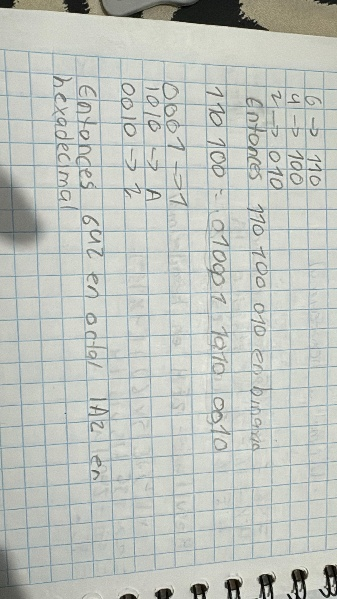 6 → 110
4 → 100
2 → 010
Entonces 110 100 010 en binario
110 100
0001 1010 0010
0001 → 1
1010 → A
0010 → 2
Entonces 642 en octal 1A2 en
hexadecimal